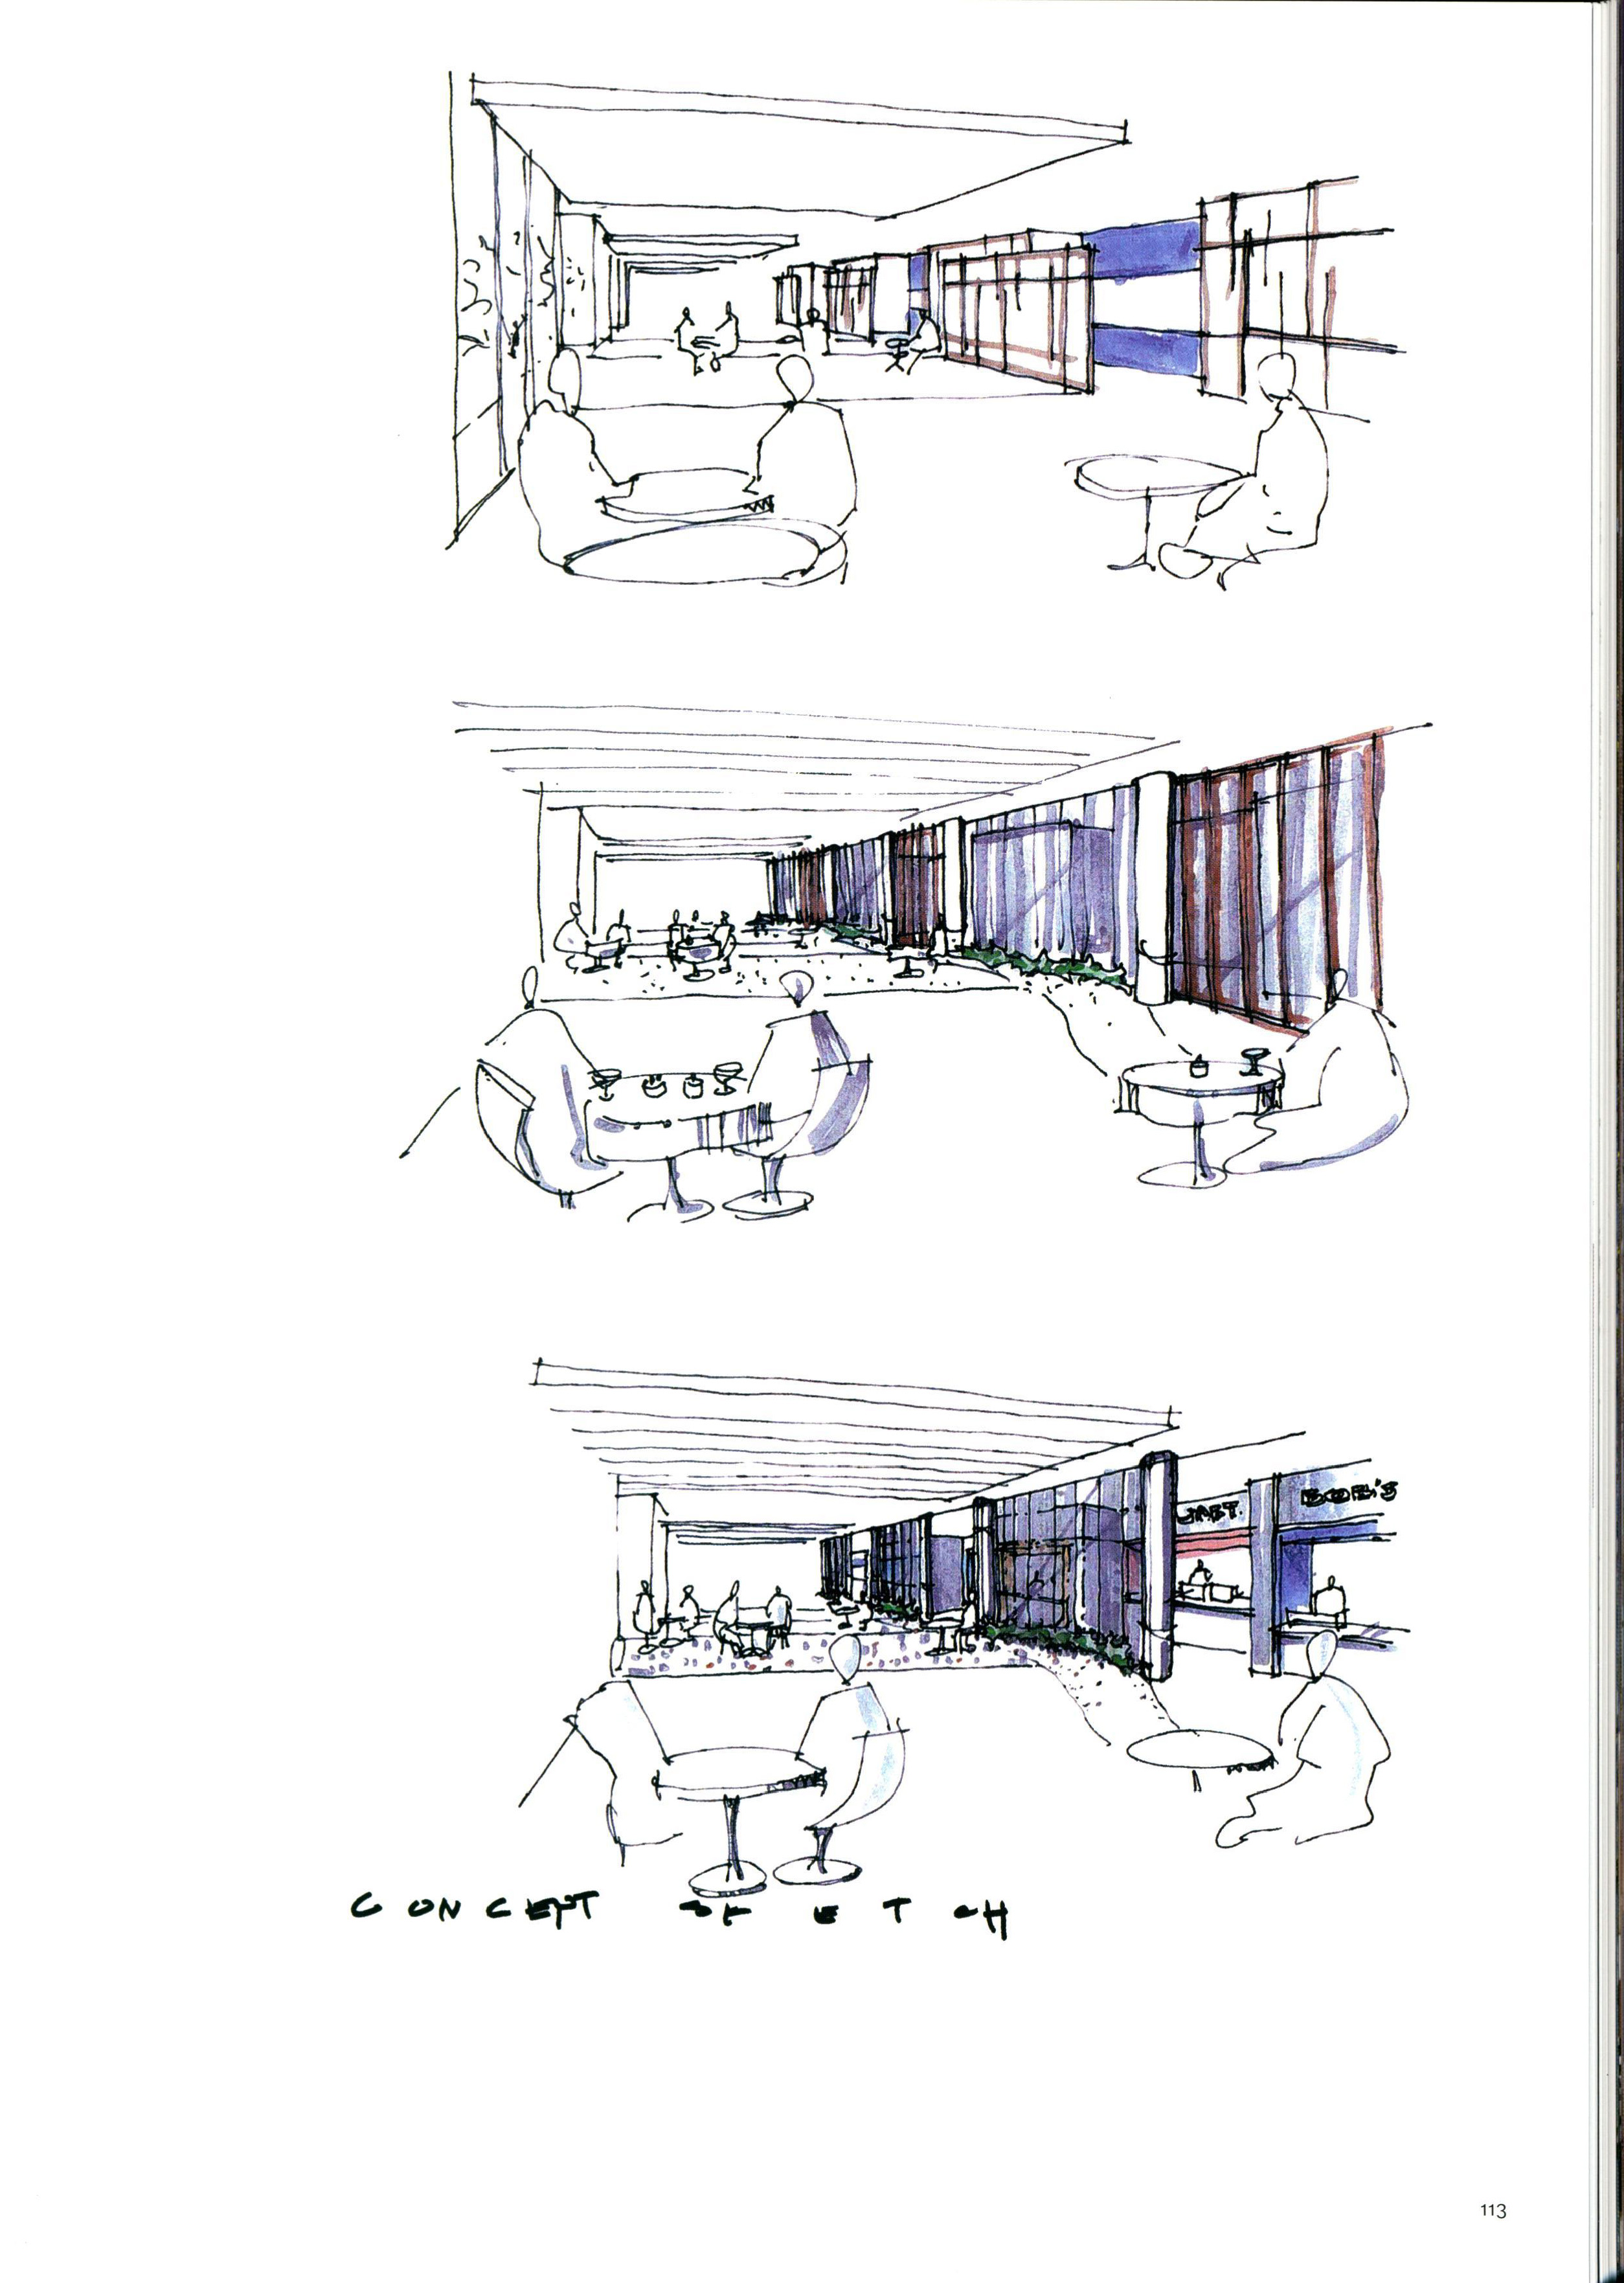 BOB'S
CONCEPT SKETCH
113